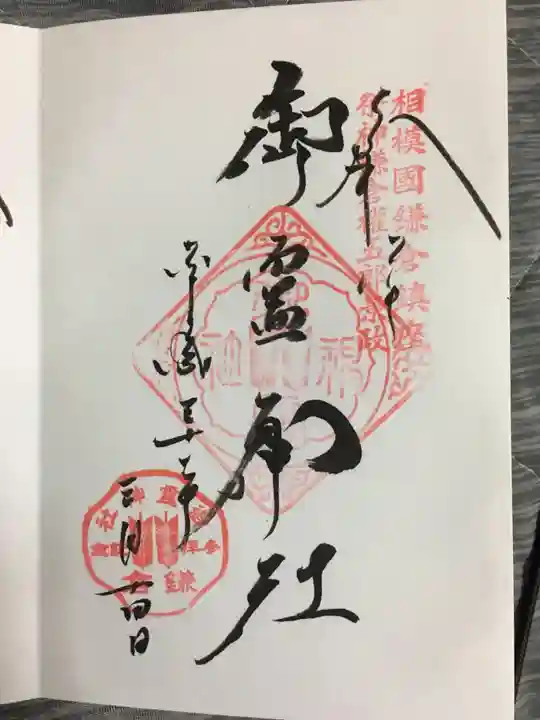 相模國鎌倉鎮座
祭神鎌倉權五郎景政
奉拝
御霊神社
平成三十年
三月十四日
鎌倉